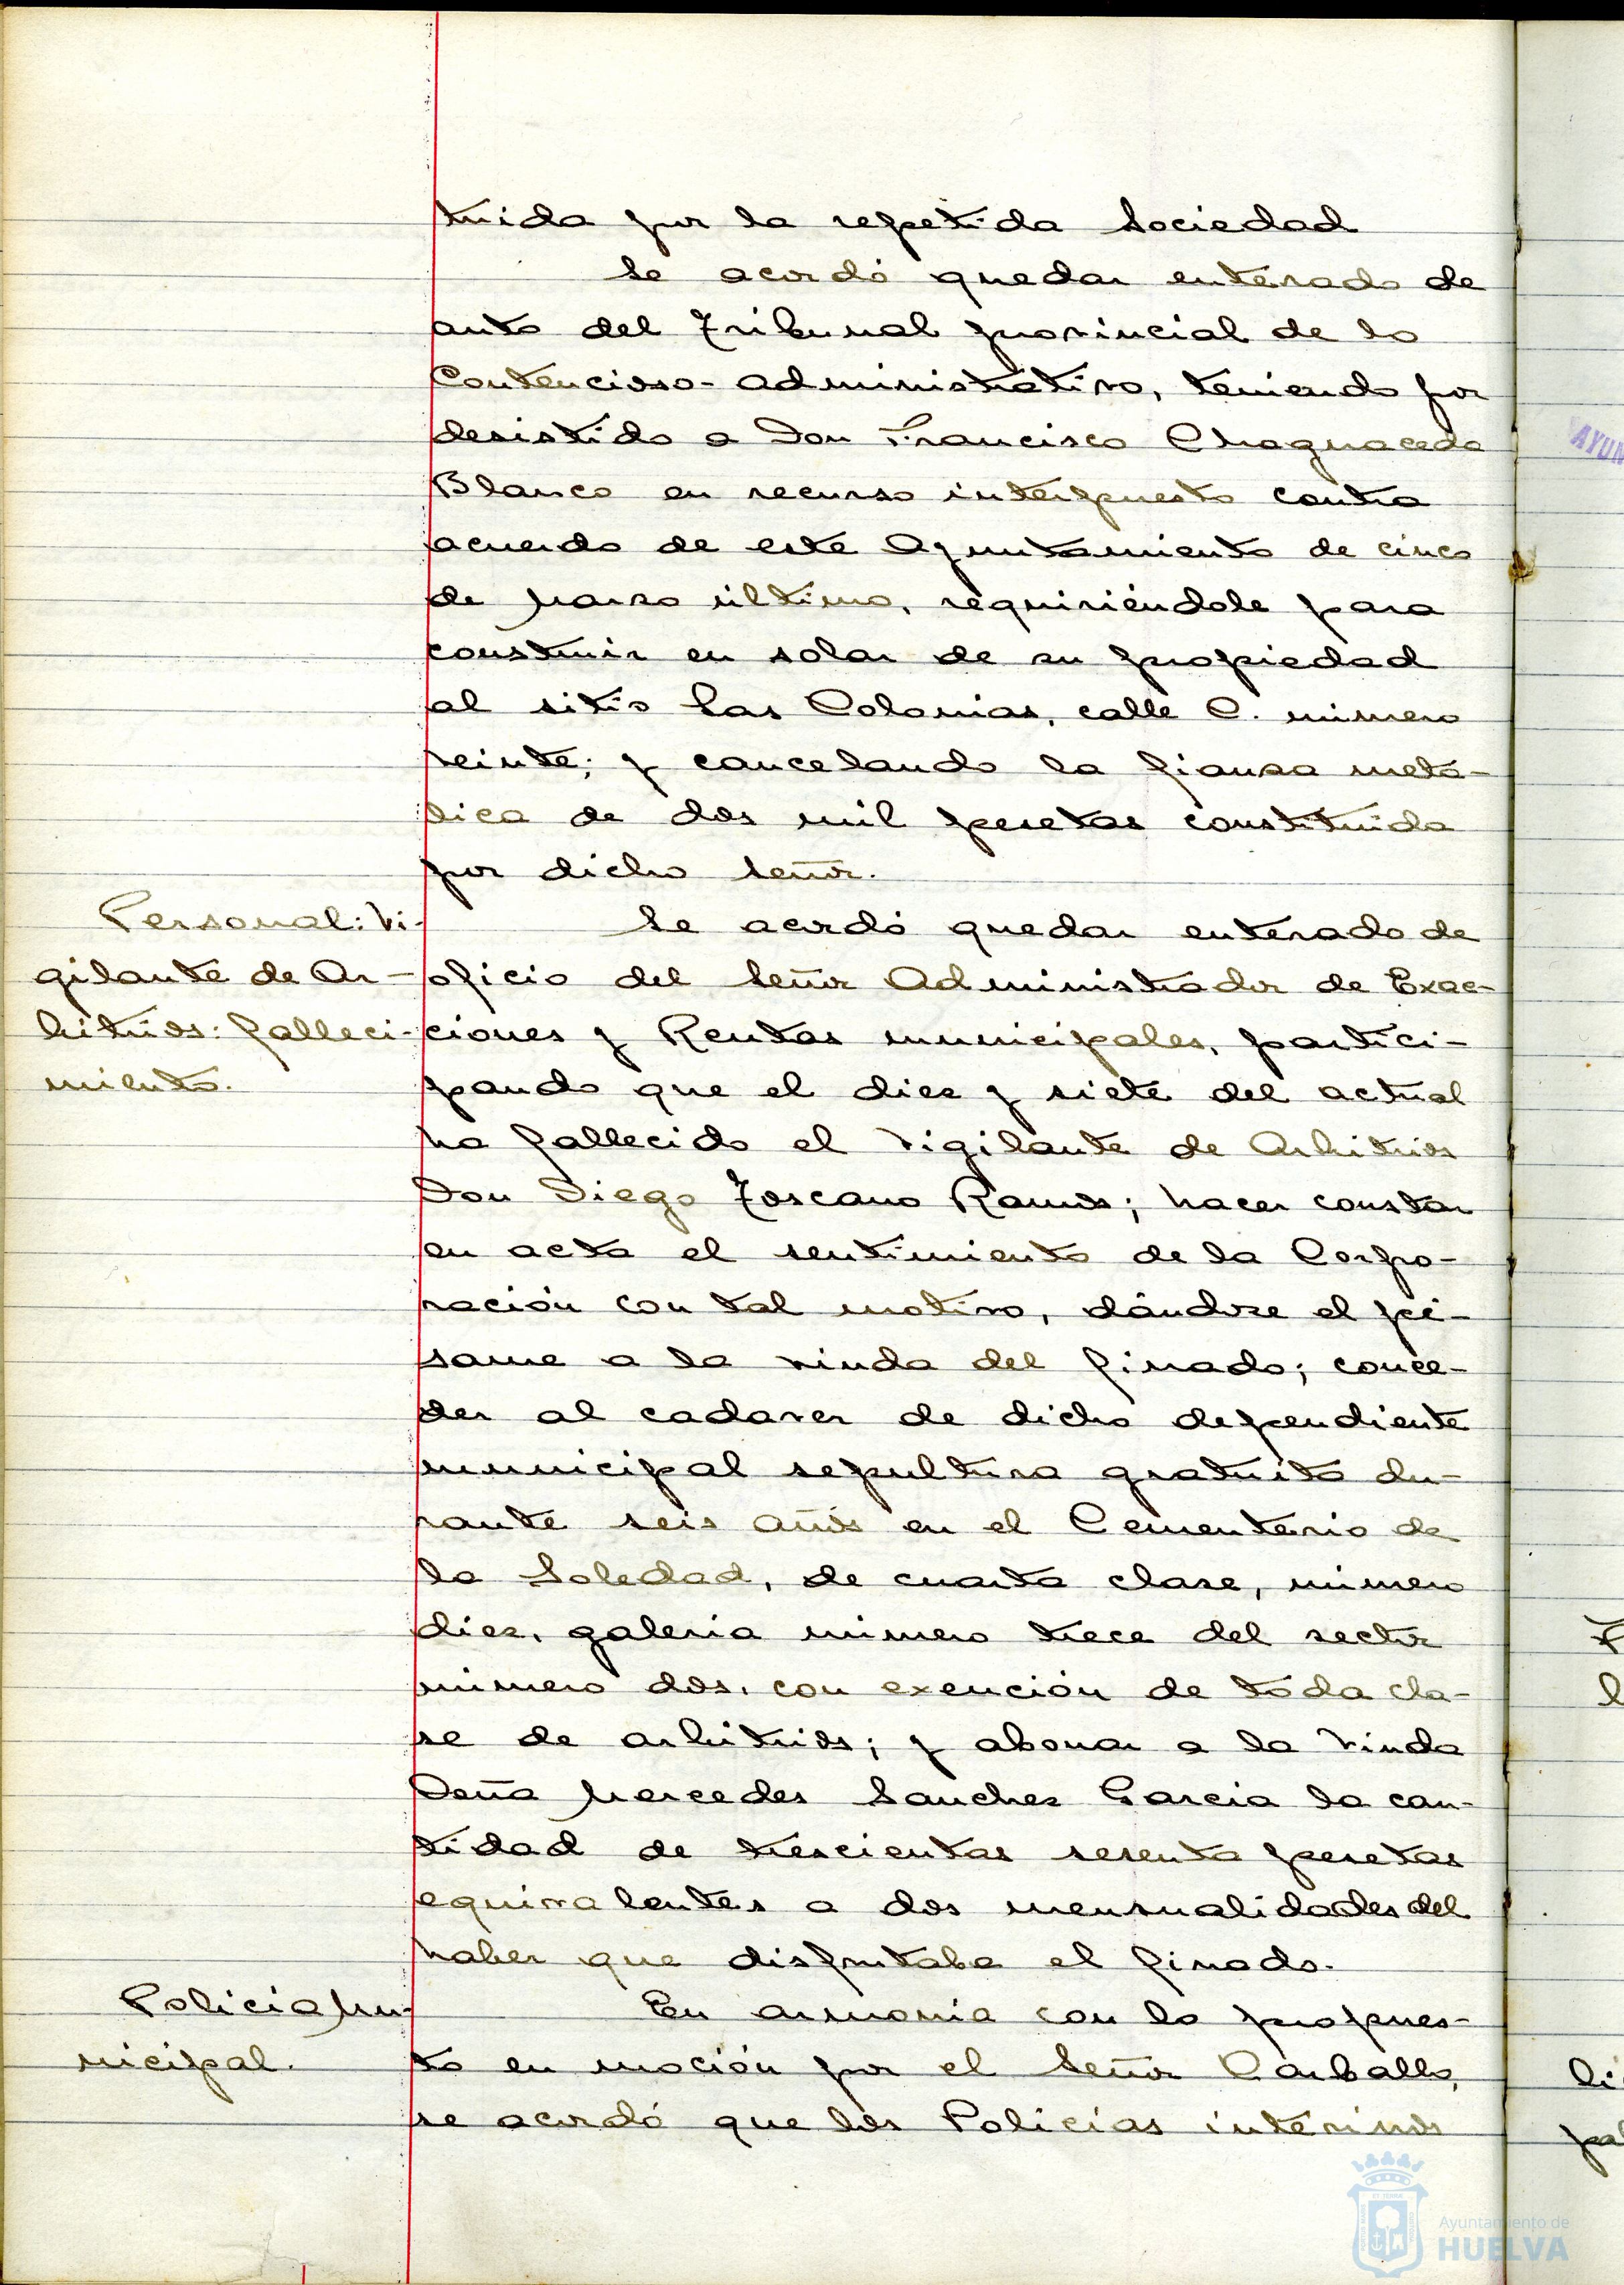 tuida por la repetida Sociedad
Se acordó quedar enterado de
auto del Tribunal provincial de lo
Contencioso-administrativo, teniendo por
desistido a Don Francisco Chaguaceda
Blanco en recurso interpuesto contra
acuerdo de este Ayuntamiento de cinco
de Marzo último, requiriéndole para
construir en solar de su propiedad
al sitio Las Colonias, calle C. número
veinte; y cancelando la fianza metá-
lica de dos mil pesetas constituida
por dicho Señor.
Personal: Vi-
gilante de Ar-
bitrios: falleci-
miento.
Se acordó quedar enterado de
oficio del Señor Administrador de Exac-
ciones y Rentas municipales, partici-
pando que el diez y siete del actual
ha fallecido el Vigilante de Arbitrios
Don Diego Toscano Ramos; hacer constar
en acta el sentimiento de la Corpo-
ración con tal motivo, dándose el pé-
same a la viuda del finado; conce-
der al cadaver de dicho dependiente
municipal sepultura gratuita du-
rante seis años en el Cementerio de
la Soledad, de cuarta clase, número
diez, galeria número trece del sector
número dos, con exención de toda cla-
se de arbitrios; y abonar a la Viuda
Doña Mercedes Sanchez Garcia la can-
tidad de trescientas sesenta pesetas
equivalentes a dos mensualidades del
haber que disfrutaba el finado.
Policia Mu-
nicipal.
En armonia con lo propues-
to en moción por el Señor Carballo,
se acordó que los Policías interinos
AYUN
li
pal
Ayuntamiento de
HUELVA